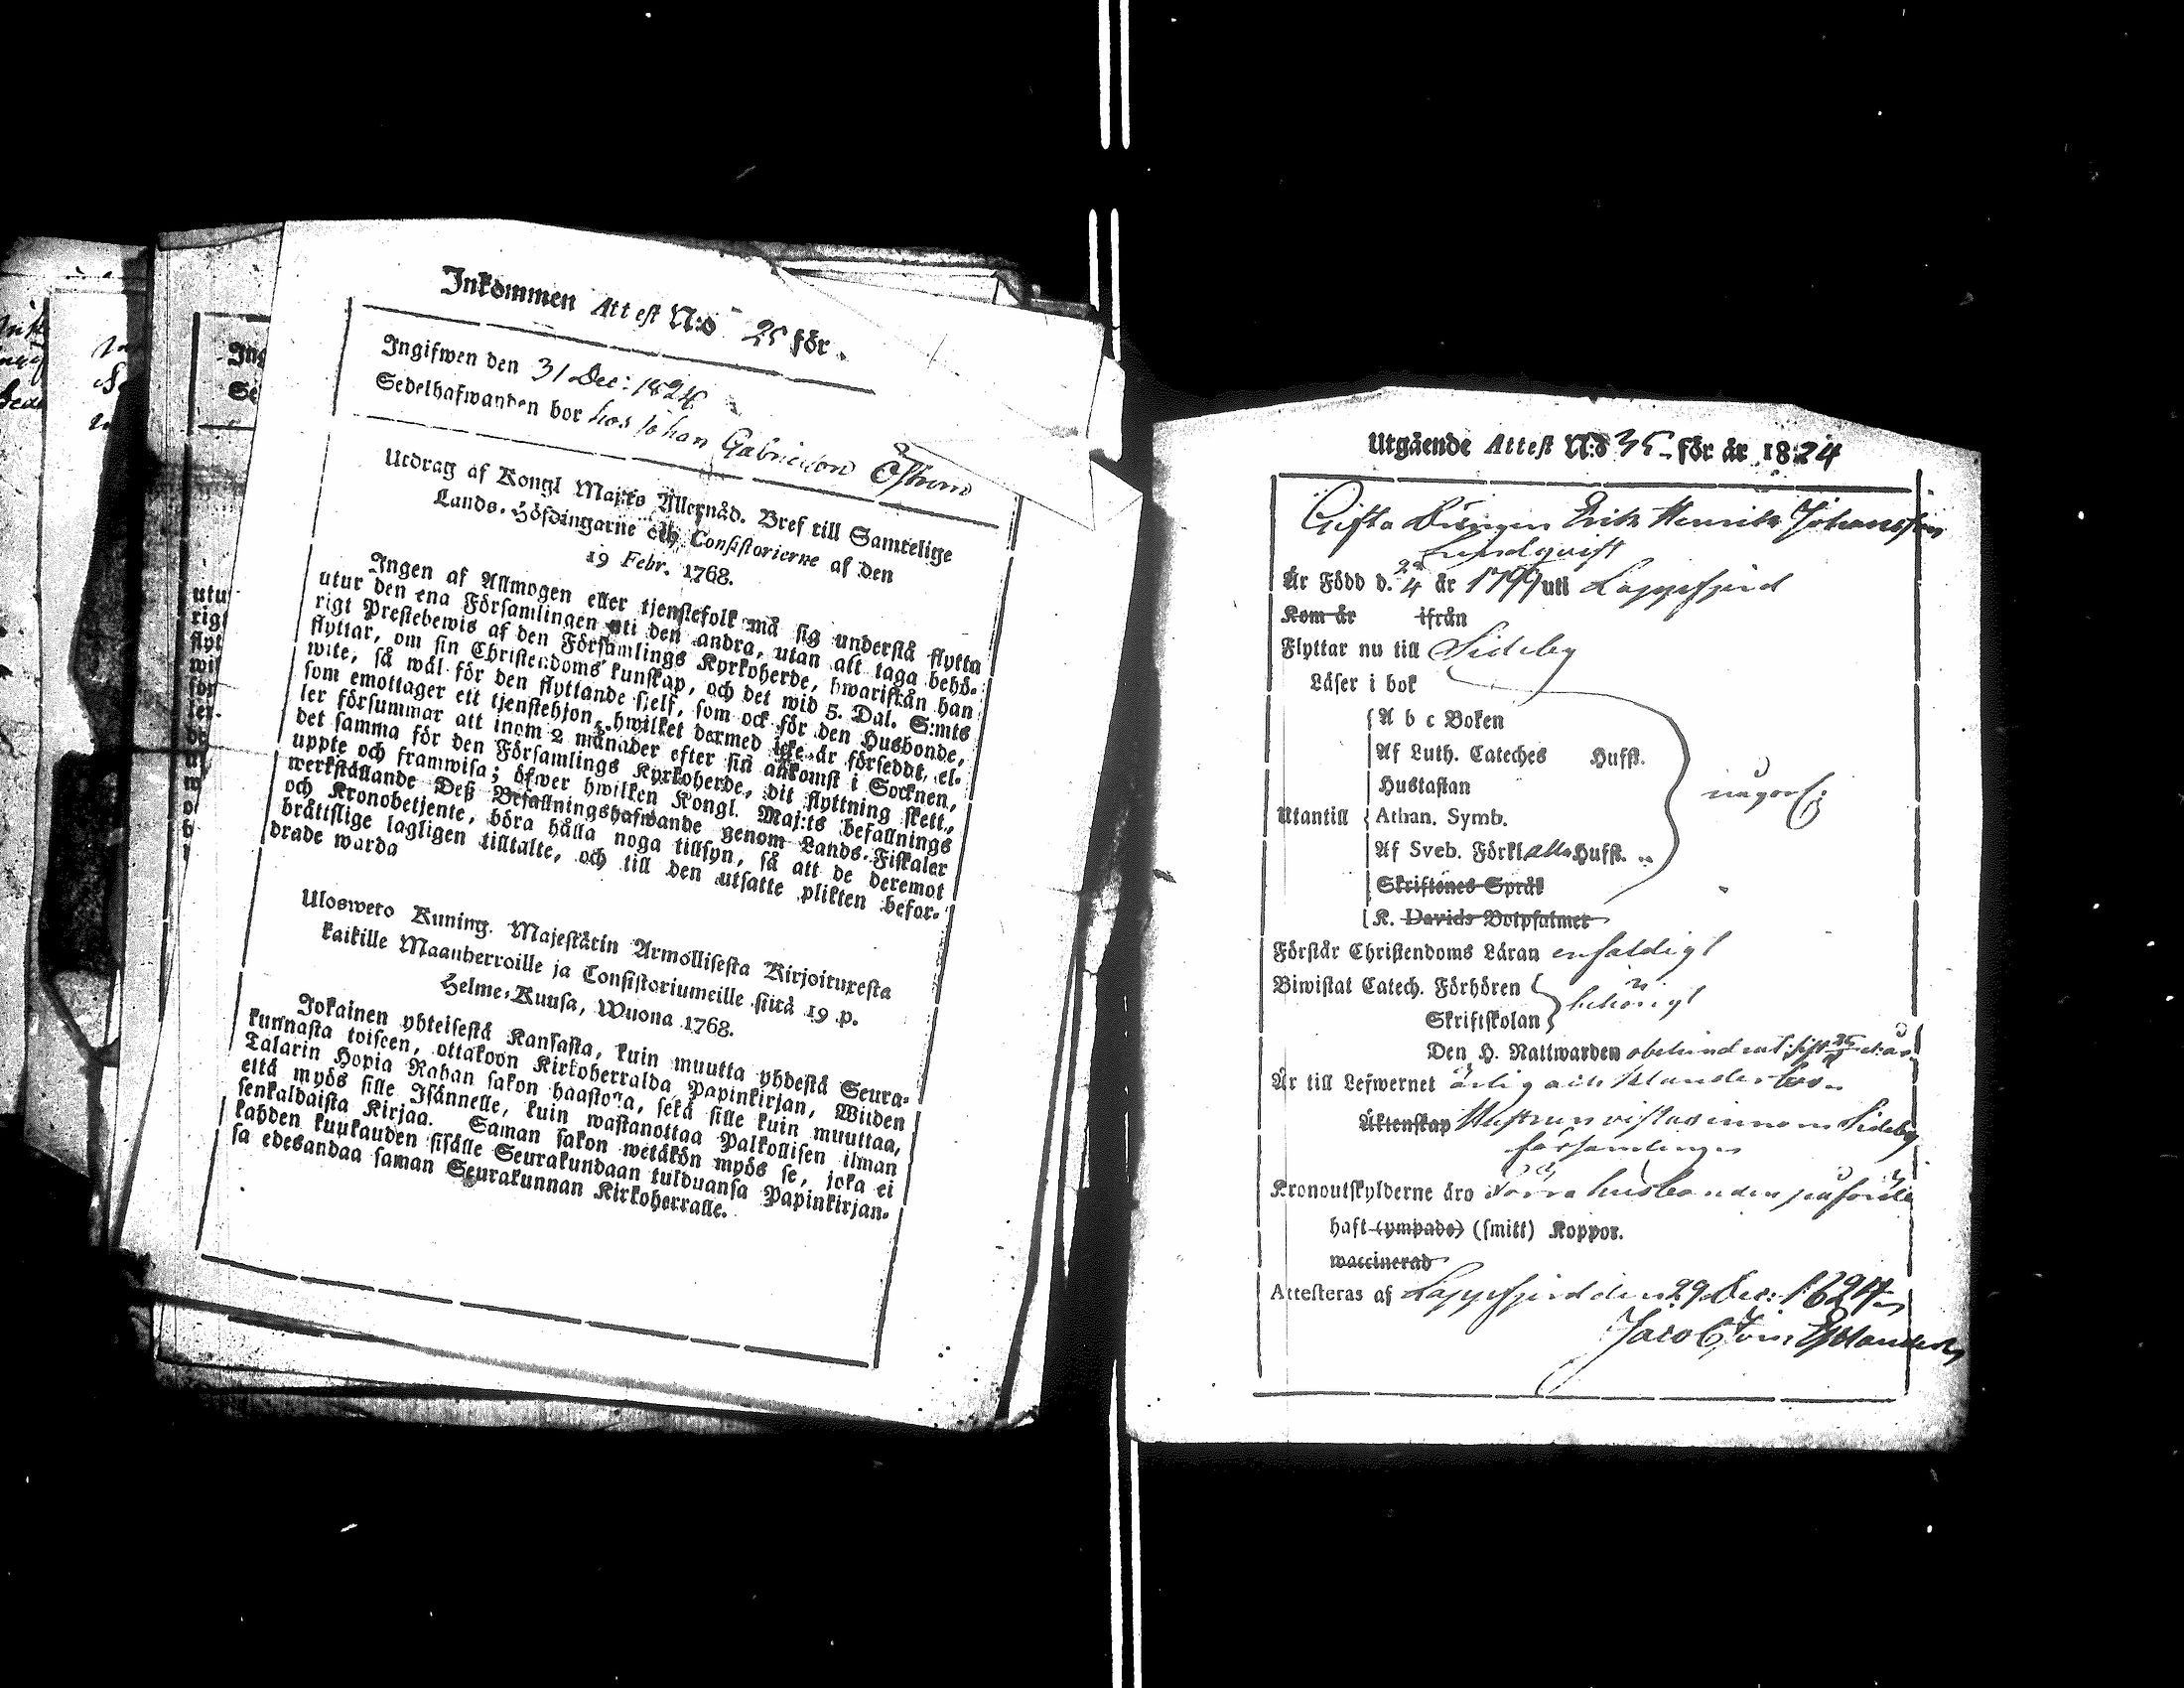 Inkommen Attest N:o 25 för
Ingifwen den 31 Dec: 1824
Sedelhafwanden bor hos Johan Gabrielson Öström
Utdrag af Kongl Maj:ts Allernåd. Bref till Samtelige
Lands-Höfdingarne och Consistorierne af den
19 Febr. 1768.
Ingen af Allmogen eller tjenstefolk må sig understå flytta
utur den ena Församlingen uti den andra, utan att taga behö-
rigt Prestebewis af den Församlings Kyrkoherde, hwarifrån han
flyttar, om sin Christendoms kunskap, och det wid 5. Dal. S:mts
wite, så wäl för den flyttande sjelf, som ock för den Husbonde,
som emottager ett tjenstehjon, hwilket dermed icke är försedt, el-
ler försummar att inom 2 månader efter sin ankomst i Socknen,
det samma för den Församlings Kyrkoherde, dit flyttning skett,
uppte och framwisa; öfwer hwilken Kongl. Maj:ts befallnings
werkställande Deß Befallningshafwande genom Lands-Fiskaler
och Kronobetjente, böra hålla noga tillsyn, så att de deremot
bråttslige lagligen tilltalte, och till den utsatte plikten befor-
drade warda
Uloswero Kuning. Majestätin Armollisesta Kirjoituxesta
kaikille Maanherroille ja Consistoriumeille siitä 19 p.
Helme-Kuusa, Wuona 1768.
Jokainen yhteisestä Kansasta, kuin muutta yhdestä Seura-
kunnasta toiseen, ottakoon Kirkoherralda Papinkirjan, Wiiden
Talarin Hopia Rahan sakon haastolla, sekä sille kuin muuttaa,
että myös sille Isännelle, kuin wastanottaa Palkollisen ilman
senkaldaista Kirjaa. Saman sakon wetäkön myös se, joka ei
kahden kuukauden sisälle Seurakundaan tulduansa Papinkirjan-
sa edesandaa saman Seurakunnan Kirkoherralle.
Utgående Attest N:o 35 för år 1824
Gifta Drengen Erik Henrik Johansson
Lundqvist
Är Född d. 4 år 1799 uti Lappfjerd
Kom år ifrån
Flyttar nu till Sideby
Läser i bok
A b c Boken
Af Luth. Cateches Hufst.
Hustaflan
någorl:
Utantill Athan. Symb.
Af Sveb. Förkl alla Hufst.
Skriftenes Språk
K. Davids Botpsalmer
Förstår Christendoms Läran enfaldigt
Biwistat Catech. Förhören
behörigt
Skriftskolan
Den H. Nattwarden obehindrat
Är till Lefwernet ärlig och klanderlös
Äktenskap Hustrun vistas innom Sideby
församlingen
Kronoutskylderne äro förra husbonden påförde
haft (ympade) (smitt) Koppor.
waccinerad
Attesteras af Lappfjerd den 29 Dec: 1824